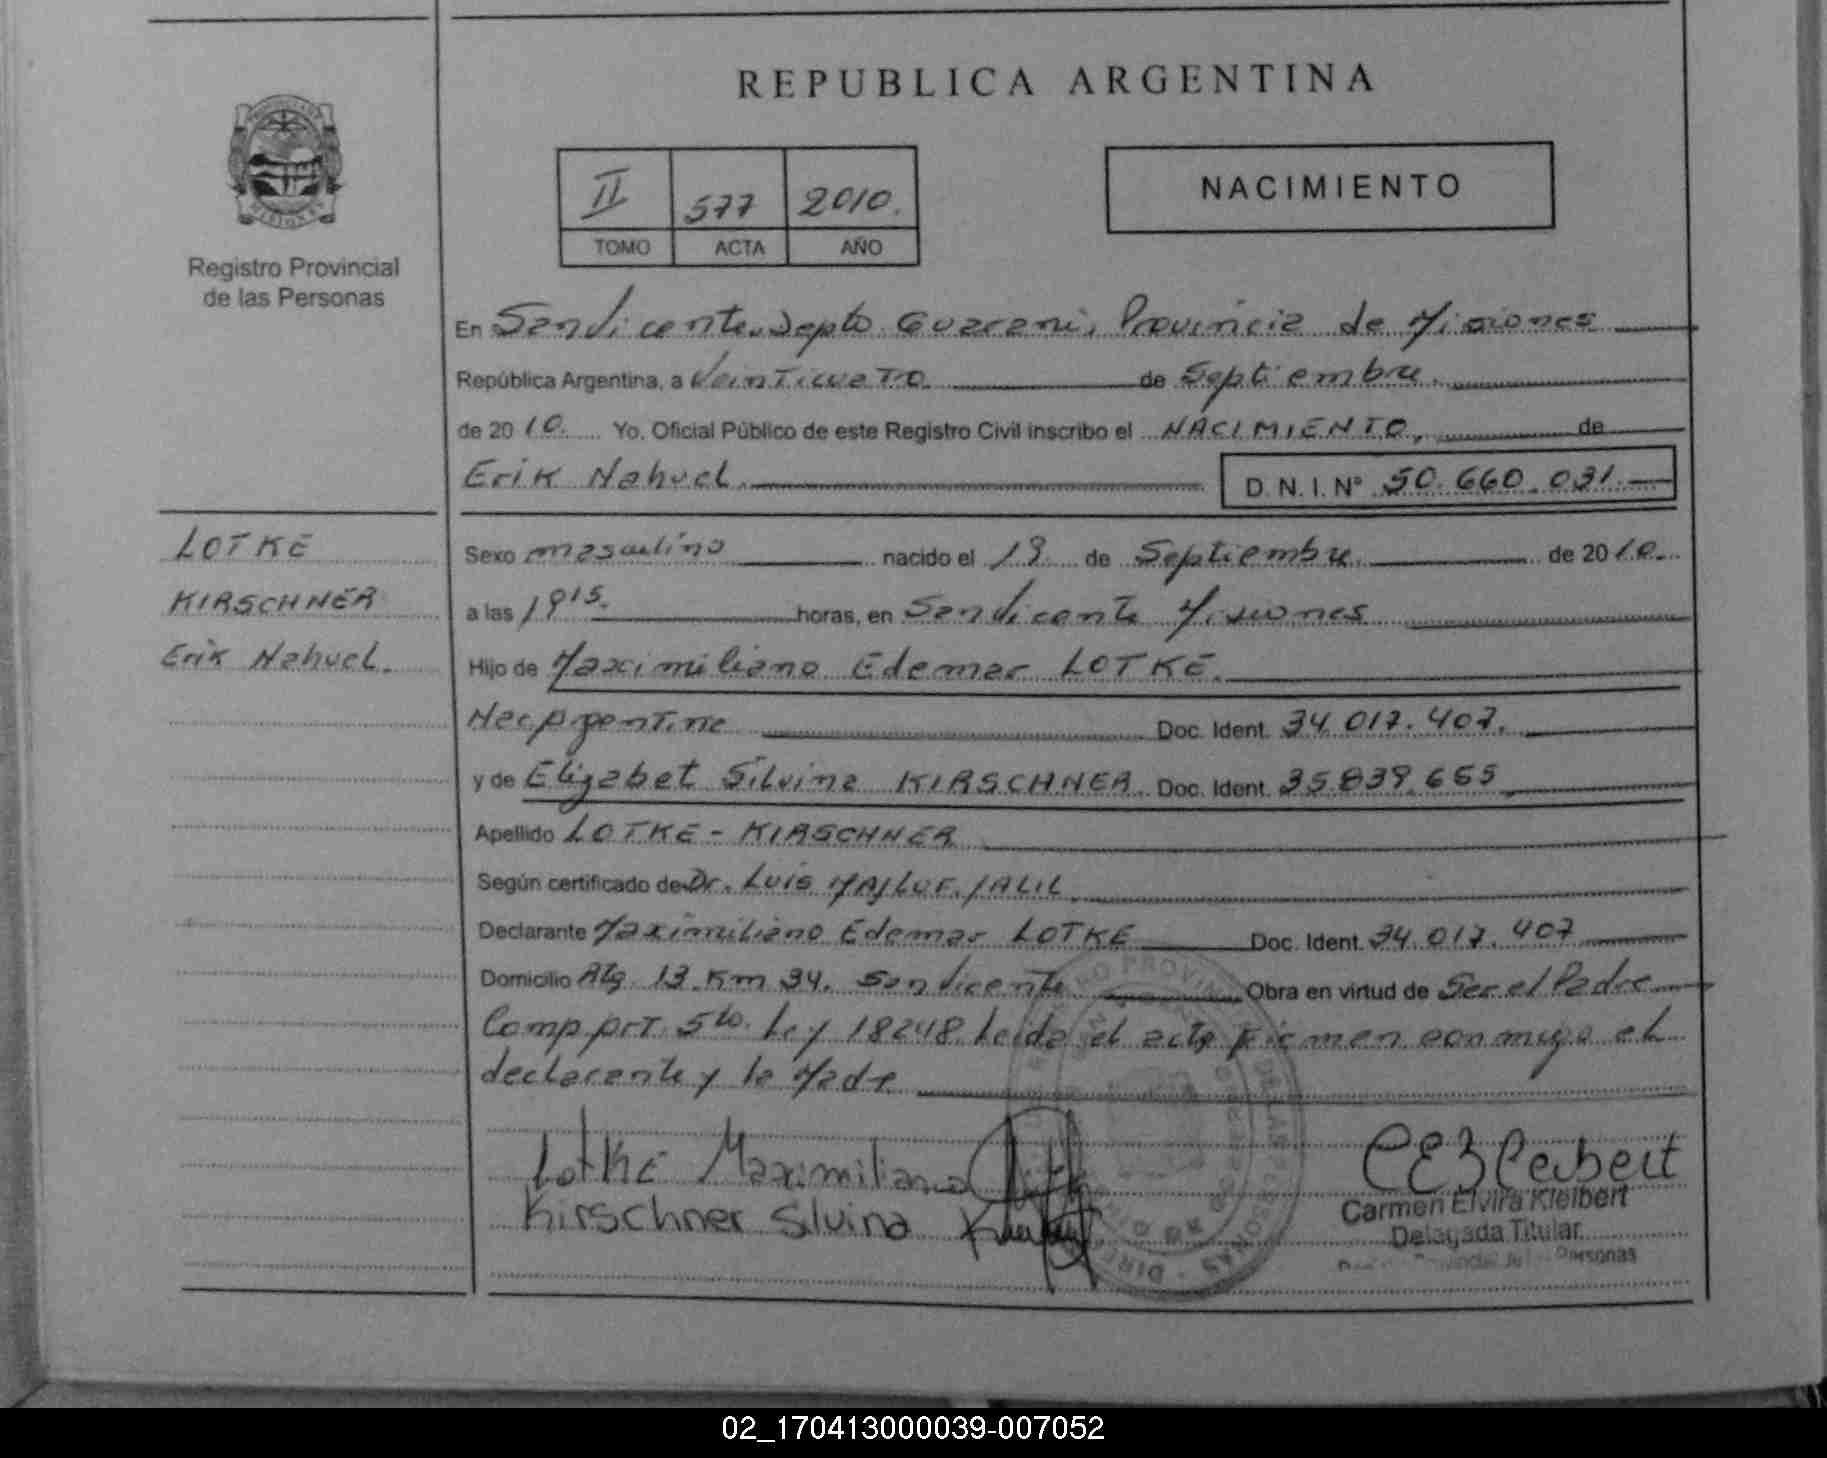 REPUBLICA ARGENTINA
NACIMIENTO
II 577 2010.
TOMO ACTA AÑO
Registro Provincial
de las Personas
En San Vicente, Depto Guarani, Provincia de Misiones
República Argentina, a Veinticuatro de Septiembre.
de 2010. Yo, Oficial Público de este Registro Civil inscribo el NACIMIENTO, de
Erik Nahuel. D.N.I. N° 50.660.031.
LOTKE
KIRSCHNER
Erik Nahuel.
Sexo masculino nacido el 19 de Septiembre de 2010.
a las 19 15. horas, en San Vicente Misiones
Hijo de Maximiliano Edemar LOTKE.
Nac Argentine Doc. Ident. 34.017.407.
y de Elizabet Silvina KIRSCHNER. Doc. Ident. 35.839.655
Apellido LOTKE - KIRSCHNER
Según certificado de Dr. Luis MAJLUF JALIL
Declarante Maximiliano Edemar LOTKE Doc. Ident. 34.017.407
Domicilio Rta 13. Km 34. San Vicente Obra en virtud de Ser el Padre
Comp Art 5to. Ley 18248 Leida el acta Firman conmigo el
declarante y la Madre
Lotke Maximiliano
Kirschner Silvina
Carmen Elvira Kleibert
Delegada Titular
Personas
02_170413000039-007052